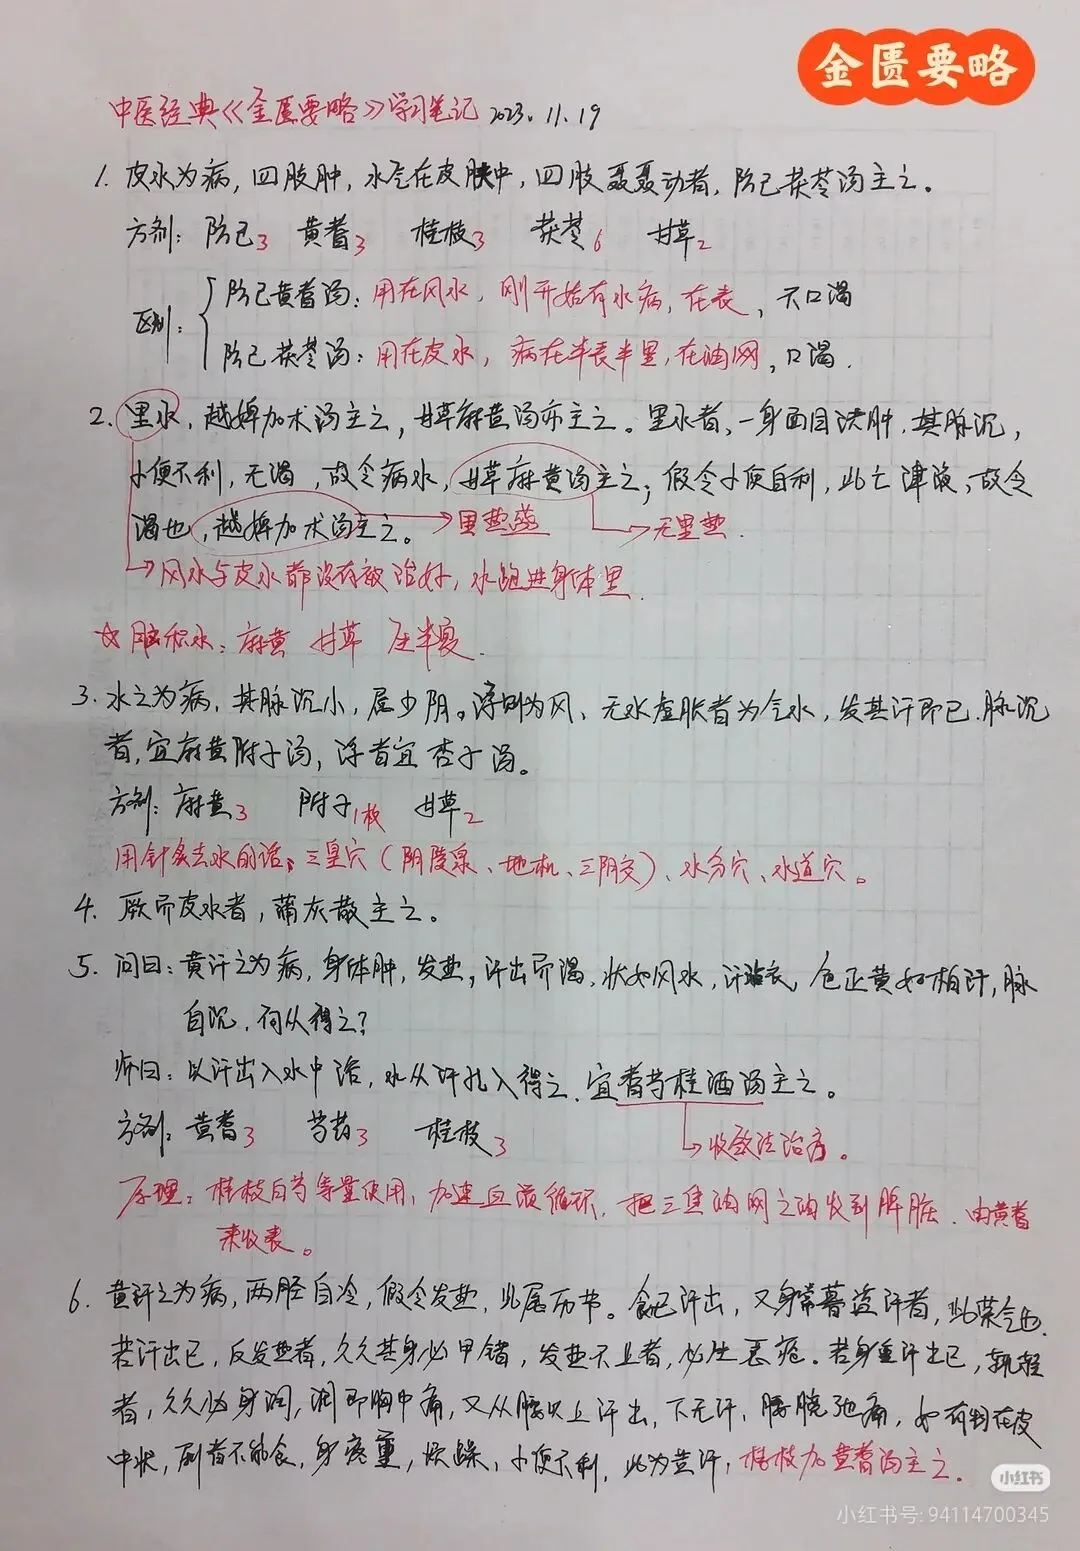 金匮要略
中医经典《金匮要略》学习笔记 2023.11.19
1. 皮水为病，四肢肿，水气在皮肤中，四肢聂聂动者，防己茯苓汤主之。
方剂：防己3 黄耆3 桂枝3 茯苓6 甘草2
区别：
防己黄耆汤：用在风水，刚开始有水病，在表，不口渴
防己茯苓汤：用在皮水，病在半表半里，在油网，口渴.
2. 里水，越婢加术汤主之，甘草麻黄汤亦主之。里水者，一身面目洪肿，其脉沉，
小便不利，无渴，故令病水，甘草麻黄汤主之；假令小便自利，此亡津液，故令
渴也，越婢加术汤主之。→里热盛 →无里热.
→风水与皮水都没有被治好，水跑进身体里.
☆脑积水：麻黄 甘草 生半夏.
3. 水之为病，其脉沉小，属少阴。浮则为风、无水虚胀者为气水，发其汗即已.脉沉
者，宜麻黄附子汤，浮者宜杏子汤。
方剂：麻黄3 附子1枚 甘草2
用针灸去水的话，三皇穴（阴陵泉、地机、三阴交）、水分穴、水道穴。
4. 厥而皮水者，蒲灰散主之。
5. 问曰：黄汗之为病，身体肿，发热，汗出而渴，状如风水，汗沾衣，色正黄如柏汁，脉
自沉，何从得之？
师曰：以汗出入水中浴，水从汗孔入得之.宜耆芍桂酒汤主之。
方剂：黄耆3 芍药3 桂枝3
→收敛法治疗。
原理：桂枝白芍等量使用，加速血液循环，把三焦油网之油发到脾脏.由黄耆
来收表。
6. 黄汗之为病，两胫自冷，假令发热，此属历节。食已汗出，又身常暮盗汗者，此荣气也.
若汗出已，反发热者，久久其身必甲错，发热不止者，必生恶疮。若身重汗出已，辄轻
者，久久必身润，润即胸中痛，又从腰以上汗出，下无汗，腰髋弛痛，如有物在皮
中状，剧者不能食，身疼重，烦躁，小便不利，此为黄汗，桂枝加黄耆汤主之.
小红书
小红书号: 94114700345